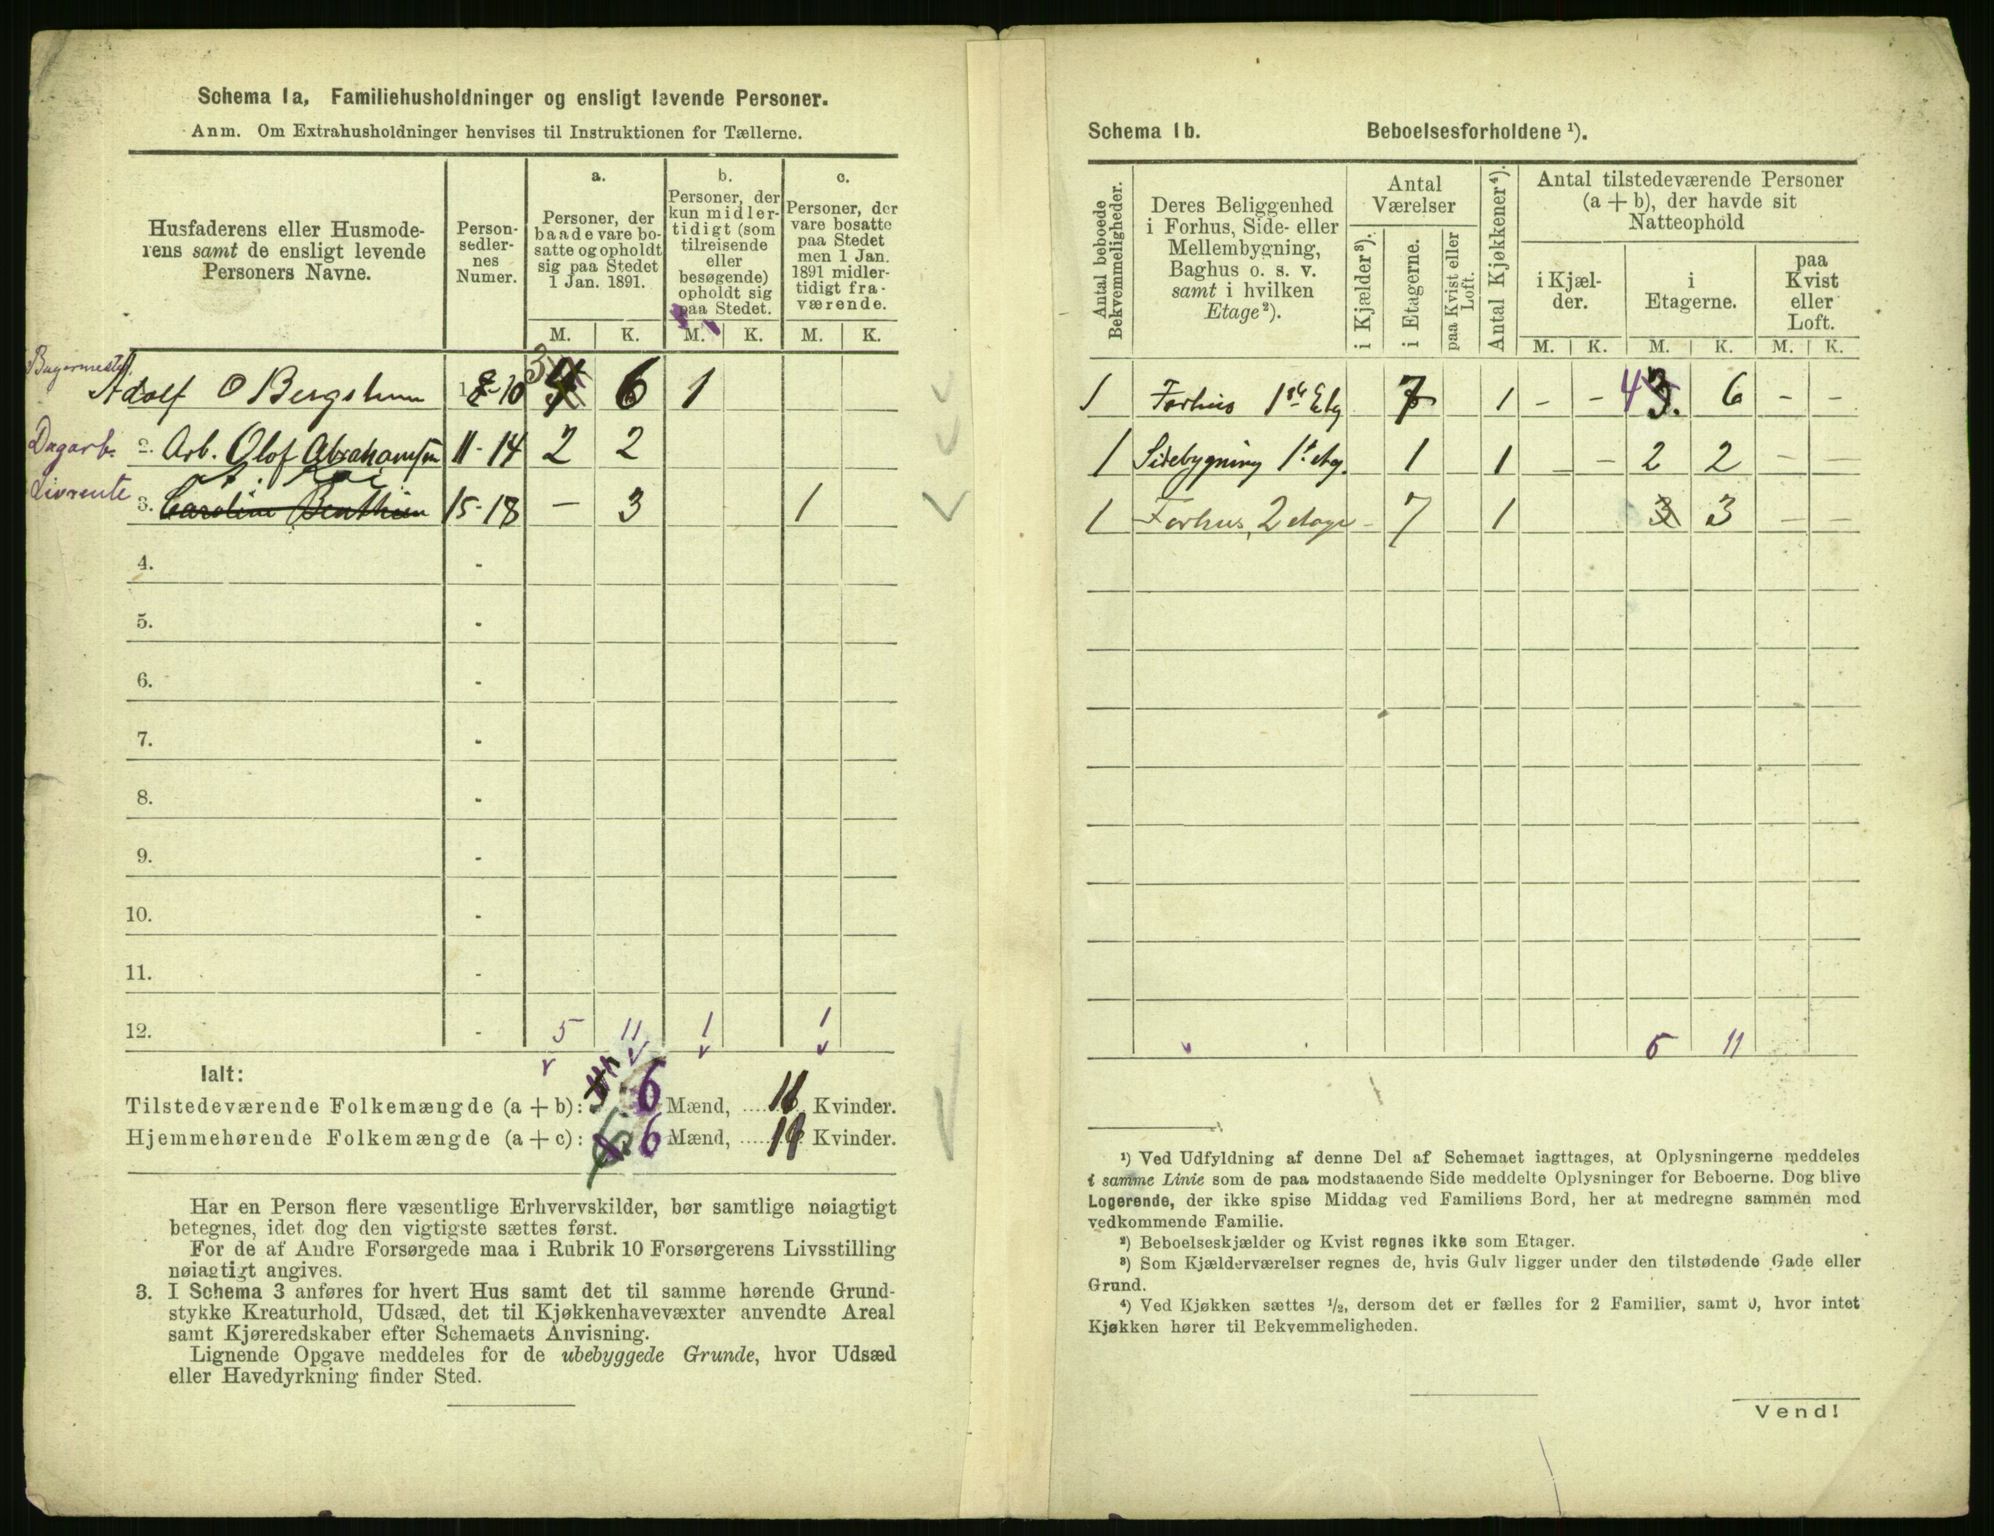 Schema 1a, Familiehusholdninger og ensligt levende Personer.
Anm. Om Extrahusholdninger henvises til Instruktionen for Tællerne.
Husfaderens eller Husmode-
rens samt de ensligt levende
Personers Navne.
Person-
sedler-
nes
Numer.
a.
Personer, der
baade vare bo-
satte og opholdt
sig paa Stedet
1 Jan. 1891.
b.
Personer, der
kun midler-
tidigt (som
tilreisende
eller
besøgende)
opholdt sig
paa Stedet.
c.
Personer, der
vare bosatte
paa Stedet
men 1 Jan.
1891 midler-
tidigt fra-
værende.
M. K. M. K. M. K.
Bagermester
Adolf O Bergstrøm 10 3 6 1
Dagarb.
2. Arb. Olof Abrahamsen 11-14 2 2
Livrente
3. Caroline Benthien 15-18 – 3 1
4. -
5. -
6. -
7. -
8. -
9. -
10. -
11. -
12. - 5 11 1 1
Ialt:
Tilstedeværende Folkemængde (a + b): 6 Mænd, 11 Kvinder.
Hjemmehørende Folkemængde (a + c): 6 Mænd, 11 Kvinder.
Har en Person flere væsentlige Erhvervskilder, bør samtlige nøiagtigt
betegnes, idet dog den vigtigste sættes først.
For de af Andre Forsørgede maa i Rubrik 10 Forsørgerens Livsstilling
nøiagtigt angives.
3. I Schema 3 anføres for hvert Hus samt det til samme hørende Grund-
stykke Kreaturhold, Udsæd, det til Kjøkkenhavevæxter anvendte Areal
samt Kjøreredskaber efter Schemaets Anvisning.
Lignende Opgave meddeles for de ubebyggede Grunde, hvor Udsæd
eller Havedyrkning finder Sted.
Schema 1b. Beboelsesforholdene ¹).
Antal beboede
Bekvemmeligheder.
Deres Beliggenhed
i Forhus, Side- eller
Mellembygning,
Baghus o. s. v.
samt i hvilken
Etage²).
Antal
Værelser
i Kjælder³).
i Etagerne.
paa Kvist eller
Loft.
Antal Kjøkkener⁴).
Antal tilstedeværende Personer
(a + b), der havde sit
Natteophold
i Kjæl-
der.
i
Etagerne.
paa
Kvist
eller
Loft.
M. K. M. K. M. K.
1 Forhus 1ste Etg 7 1 – – 4 3. 6 – –
1 Sidebygning 1st etg. 1 1 – – 2 2 – –
1 Forhus, 2 etage – 7 1 3 3 – –
6 11
¹) Ved Udfyldning af denne Del af Schemaet iagttages, at Oplysningerne meddeles
i samme Linie som de paa modstaaende Side meddelte Oplysninger for Beboerne. Dog blive
Logerende, der ikke spise Middag ved Familiens Bord, her at medregne sammen med
vedkommende Familie.
²) Beboelseskjælder og Kvist regnes ikke som Etager.
³) Som Kjælderværelser regnes de, hvis Gulv ligger under den tilstødende Gade eller
Grund.
⁴) Ved Kjøkken sættes ½, dersom det er fælles for 2 Familier, samt 0, hvor intet
Kjøkken hører til Bekvemmeligheden.
Vend!